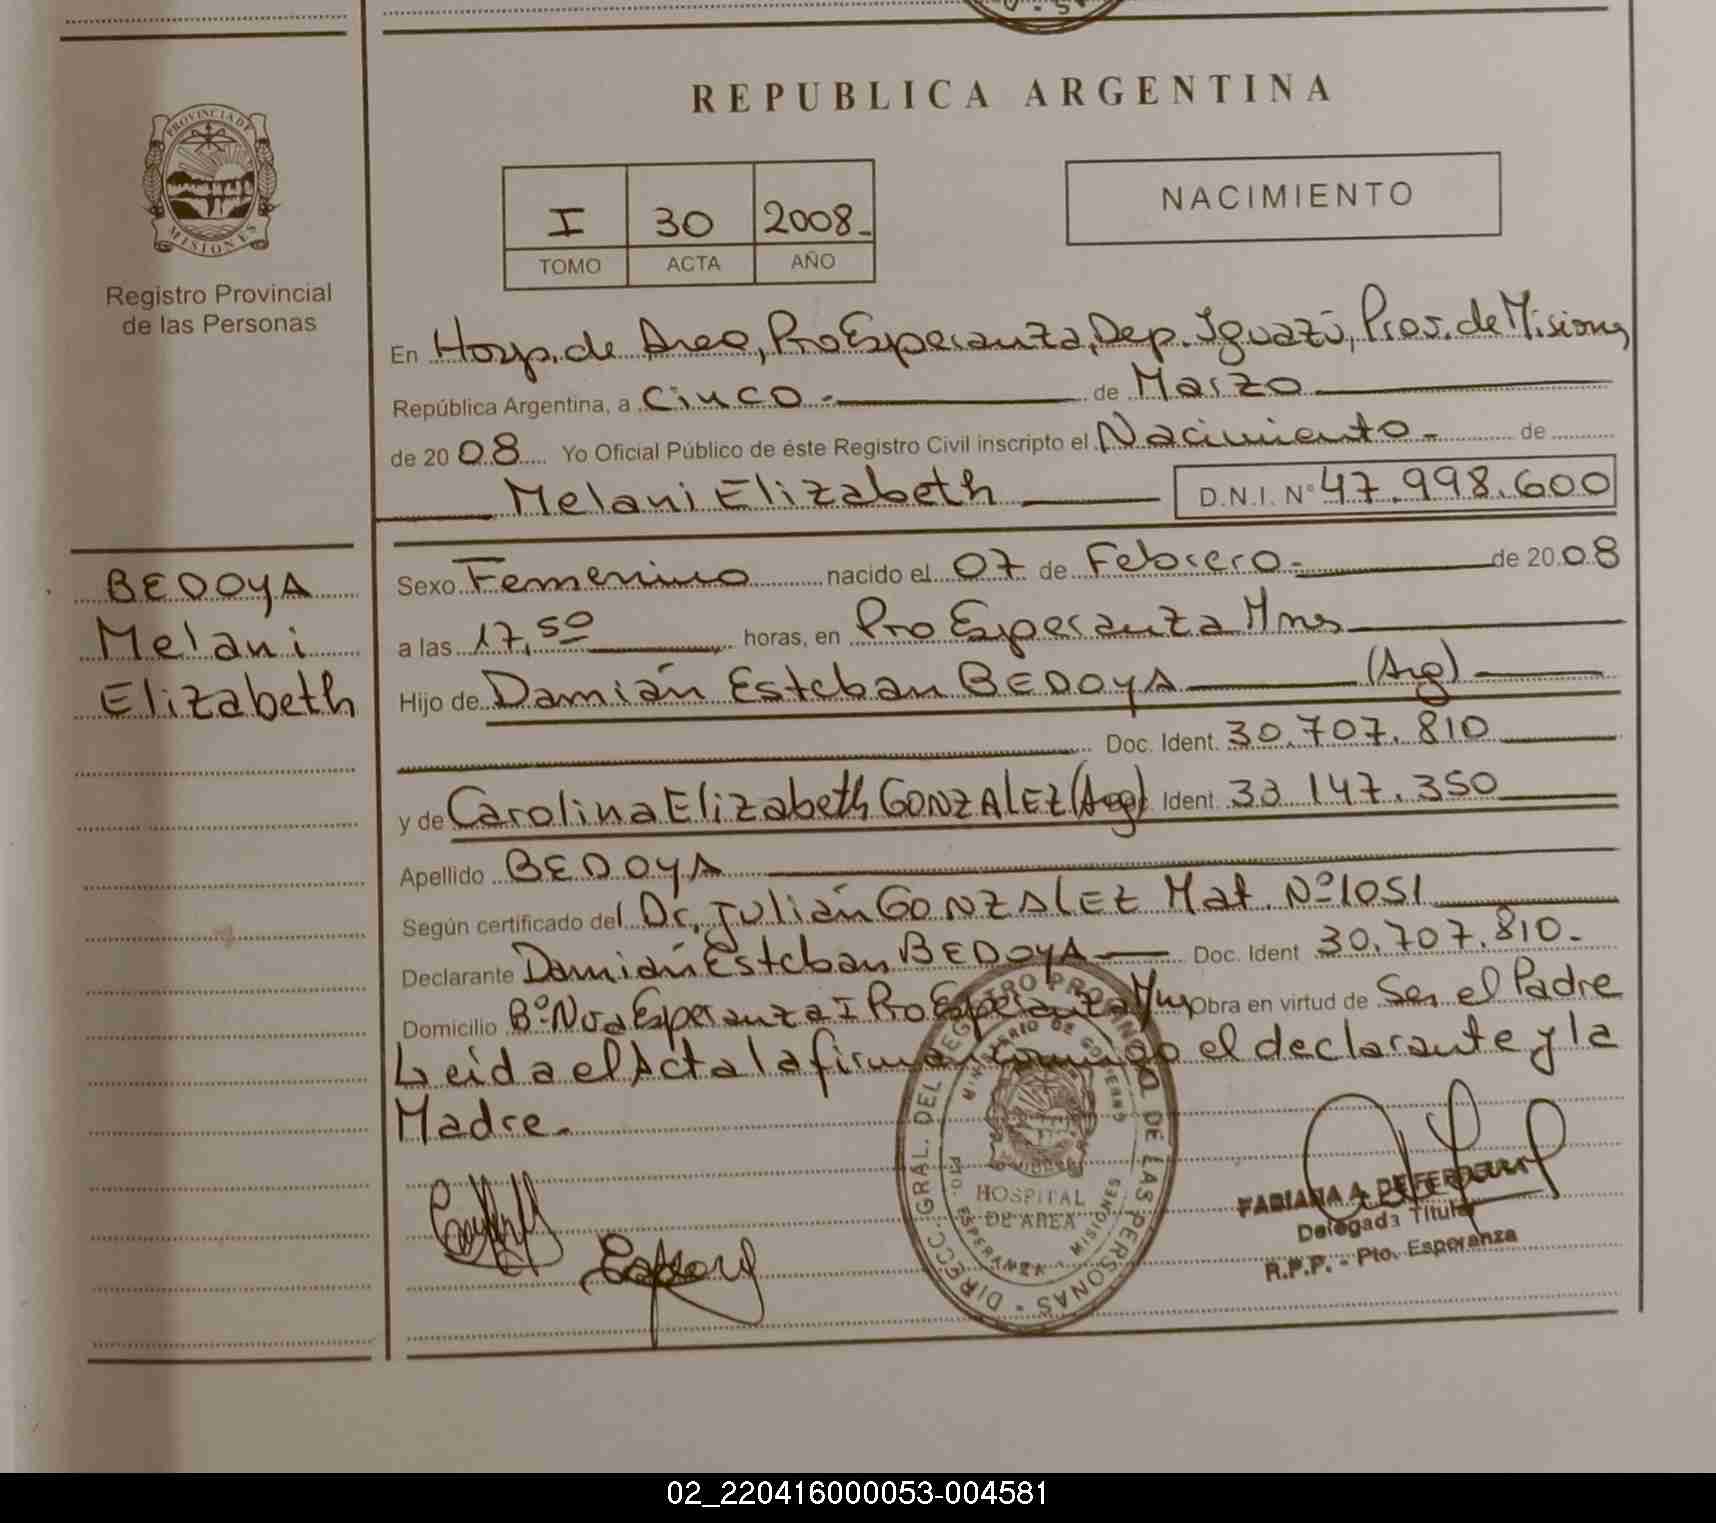 REPUBLICA ARGENTINA
PROVINCIA DE
MISIONES
Registro Provincial
de las Personas
I 30 2008.
TOMO ACTA AÑO
NACIMIENTO
En Hosp. de Area, Pto Esperanza, Dep. Iguazú, Prov. de Misiones
República Argentina, a Cinco.- de Marzo
de 2008 Yo Oficial Público de éste Registro Civil inscripto el Nacimiento.- de
Melani Elizabeth D.N.I. Nº 47.998.600
BEDOYA
Melani
Elizabeth
Sexo Femenino nacido el 07 de Febrero.- de 2008
a las 17,50 horas, en Pto Esperanza Mnes
Hijo de Damián Esteban BEDOYA (Arg)
Doc. Ident. 30.707.810
y de Carolina Elizabeth GONZALEZ (Arg) Ident. 33 147.350
Apellido BEDOYA
Según certificado del Dr. Julián GONZALEZ Mat. Nº 1051
Declarante Damián Esteban BEDOYA Doc. Ident 30.707.810.-
Domicilio Bº Nva Esperanza I Pto Esperanza Mnes Obra en virtud de Ser el Padre
Leida el Acta la firman conmigo el declarante y la
Madre.-
DIRECC. GRAL. DEL REGISTRO PROVINCIAL DE LAS PERSONAS
MINISTERIO DE GOBIERNO
HOSPITAL
DE AREA
PTO. ESPERANZA - MISIONES
FABIANA A. DE FERREYRA
Delegada Titular
R.P.P. - Pto. Esperanza
02_220416000053-004581